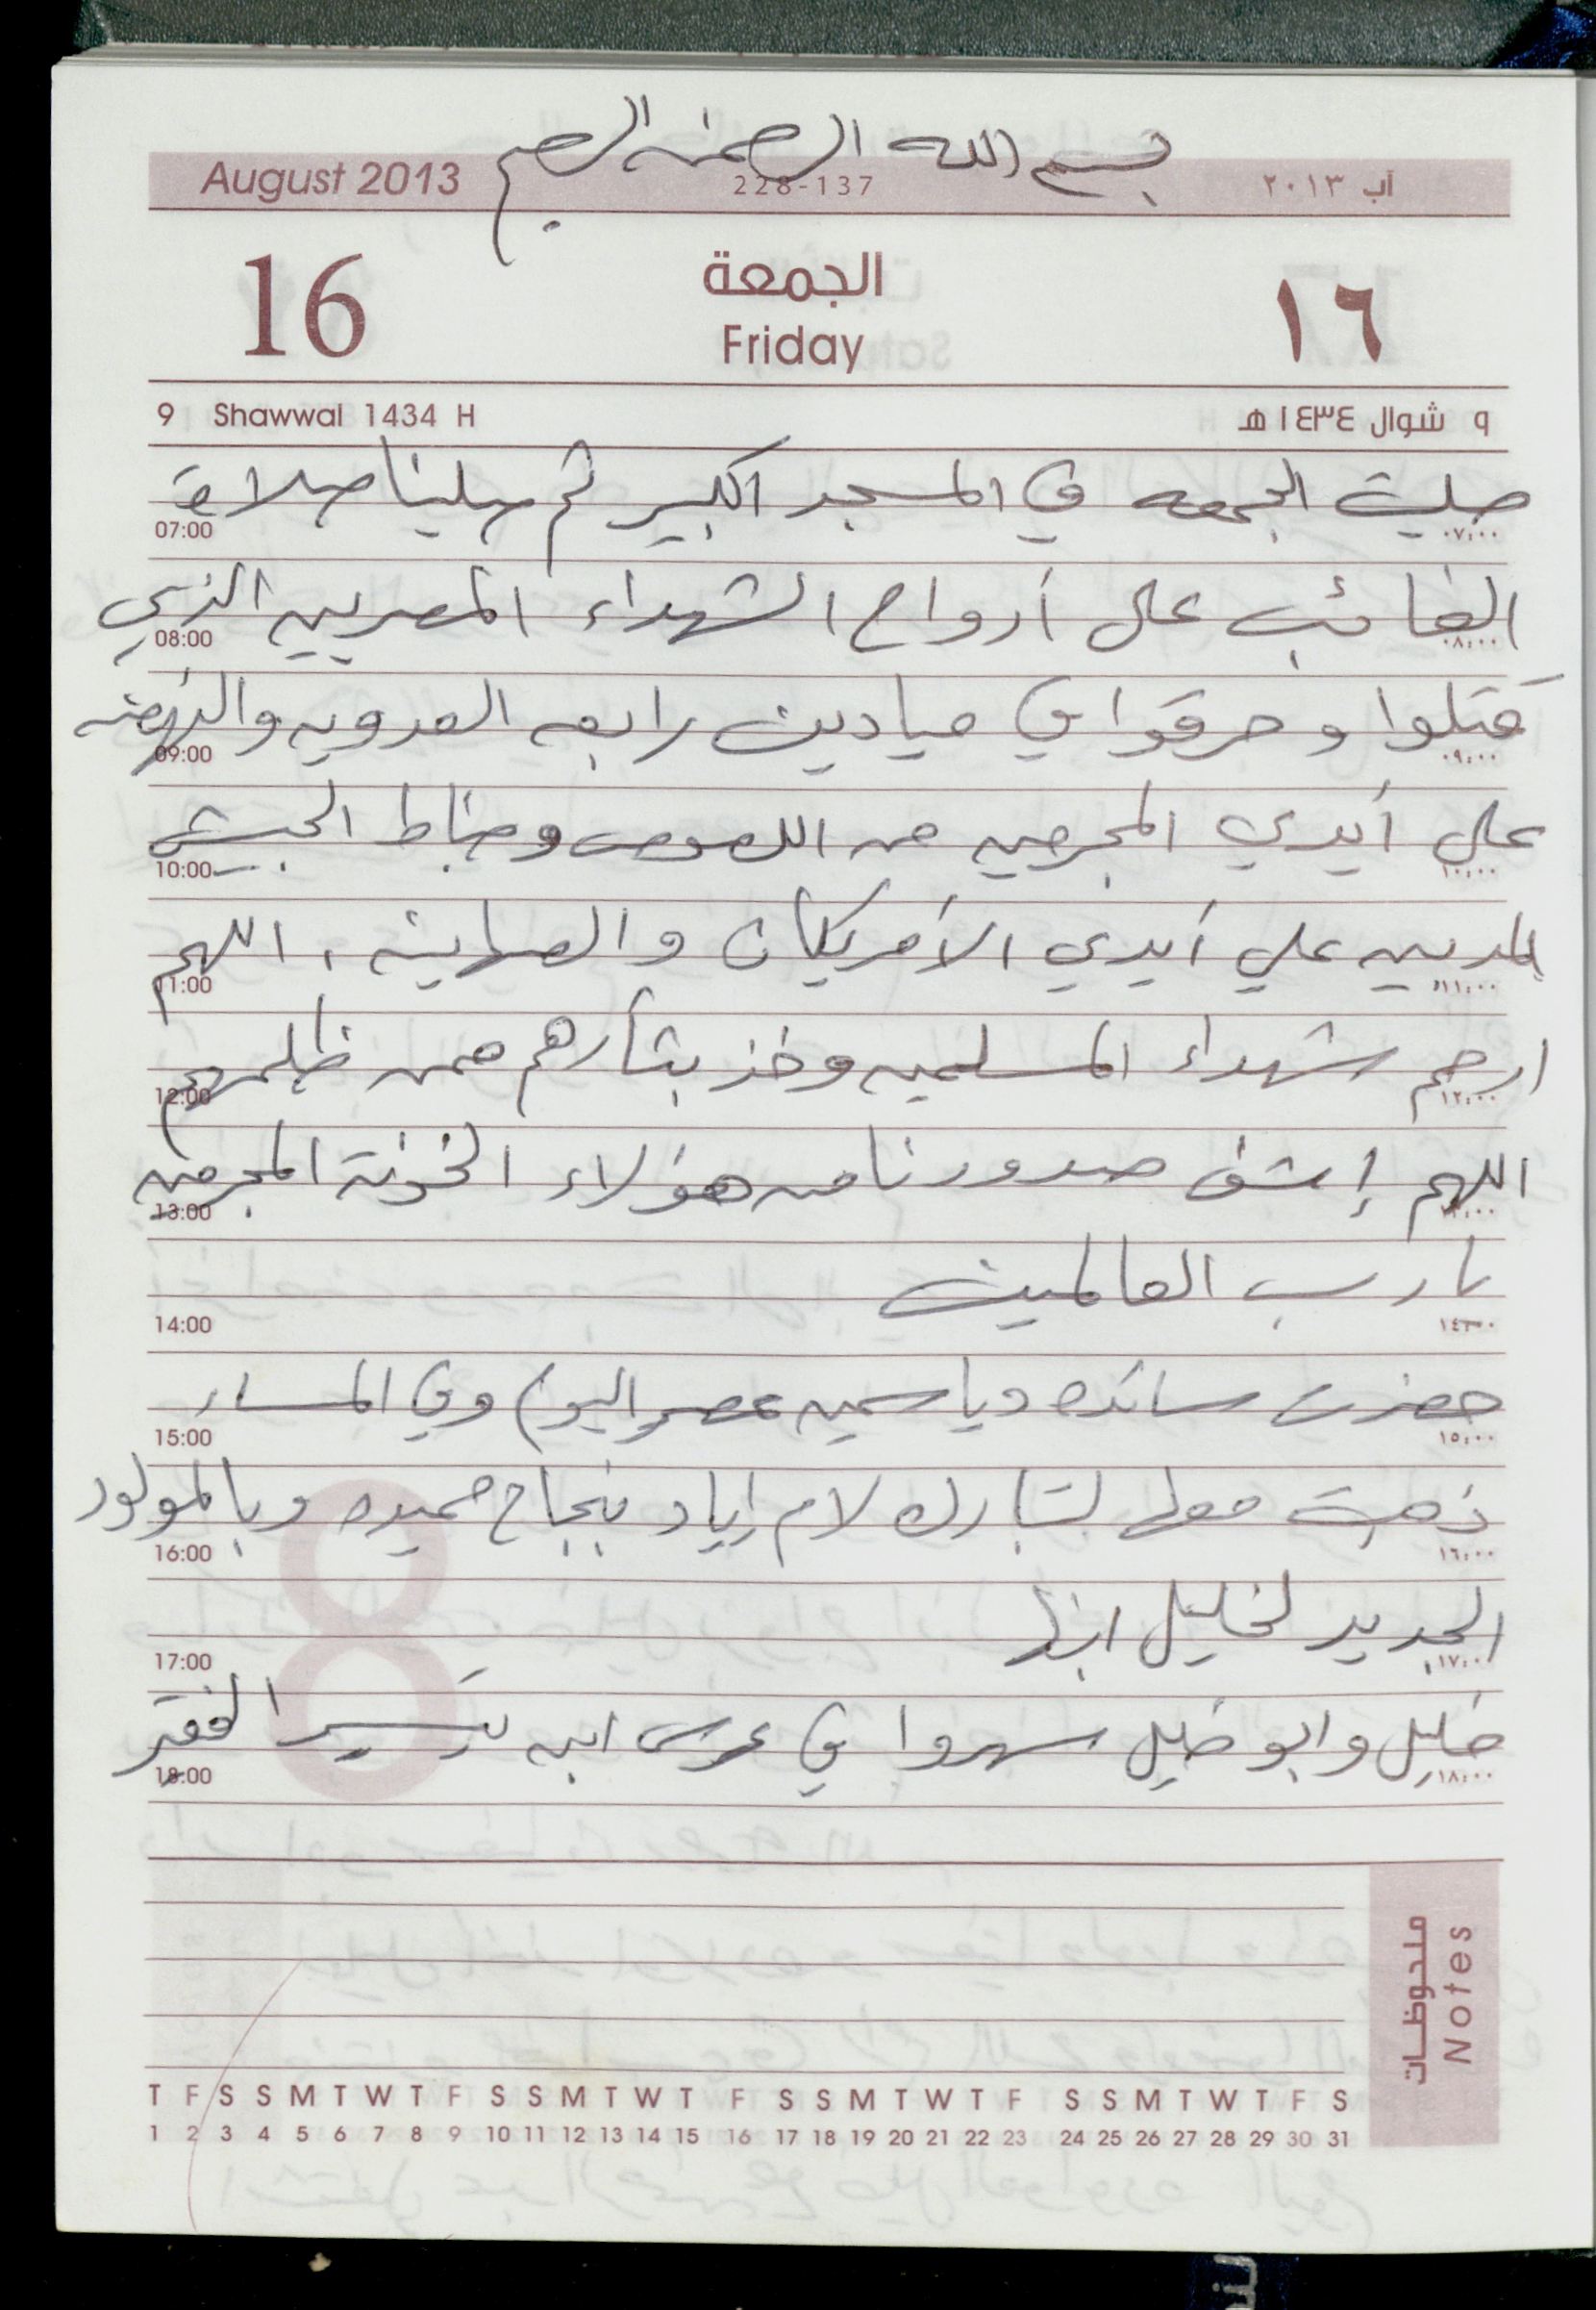 بسم الله الرحمن الرحيم
August 2013 228-137 آب ٢٠١٣
16 الجمعة ١٦
Friday
9 Shawwal 1434 H ٩ شوال ١٤٣٤ هـ
صليت الجمعه في المسجد الكبير ثم صلينا صلاة
07:00 ٠٧:٠٠
الغائب على أرواح الشهداء المصريين الذين
08:00 ٠٨:٠٠
قتلوا وحرقوا في ميادين رابعه العدويه والنهضه
09:00 ٠٩:٠٠
على أيدي المجرمين من اللصوص وضباط الجيش
10:00 ١٠:٠٠
المدربين علي أيدي الأمريكان والصهاينه ، اللهم
11:00 ١١:٠٠
ارحم شهداء المسلمين وخذ بثأرهم ممن ظلمهم
12:00 ١٢:٠٠
اللهم إشف صدورنا من هؤلاء الخونة المجرمين
13:00 ١٣:٠٠
يا رب العالمين
14:00 ١٤:٠٠
حضرت سائده وياسمين عصر اليوم وفي المساء
15:00 ١٥:٠٠
ذهبت معها لتبارك لام اياد بنجاح حميده وبالمولود
16:00 ١٦:٠٠
الجديد لخليل ابنها
17:00 ١٧:٠٠
خليل وابو خليل سهروا في عرس ابن تيسير الفقير
18:00 ١٨:٠٠
8
8
ملحوظات
Notes
T F S S M T W T F S S M T W T F S S M T W T F S S M T W T F S
1 2 3 4 5 6 7 8 9 10 11 12 13 14 15 16 17 18 19 20 21 22 23 24 25 26 27 28 29 30 31